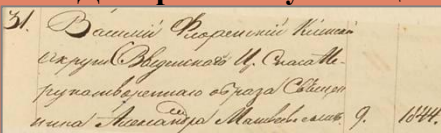 31. Василій Флоренскій Кінеш
округи Введенскаго Ц. Спаса Не-
рукотвореннаго образа Священ-
ника Александра 9. 1844.